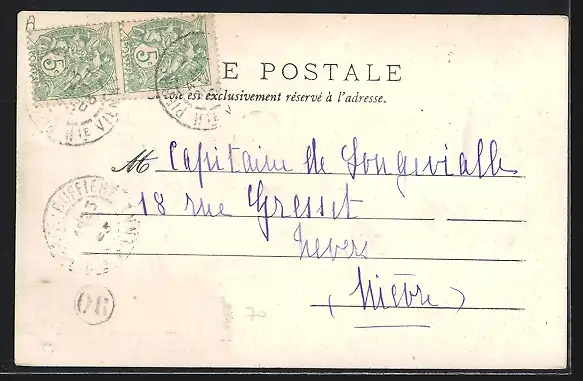 5c 5c
E POSTALE
est exclusivement réservé à l'adresse.
M Capitaine de Longevialle
18 rue Gresset
Nevers
(Nièvre)
OR
70